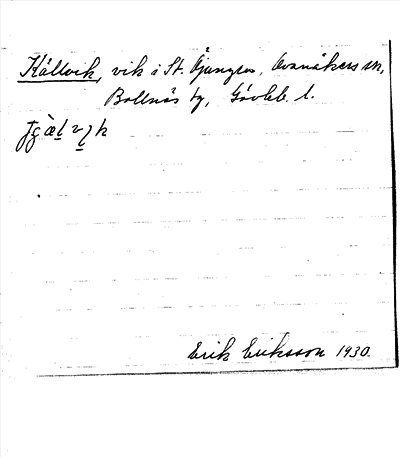 Källvik, vik i St. Öjungen, Ovanåkers sn,
Bollnäs tg, Gävleb. l.
Erik Eriksson 1930.